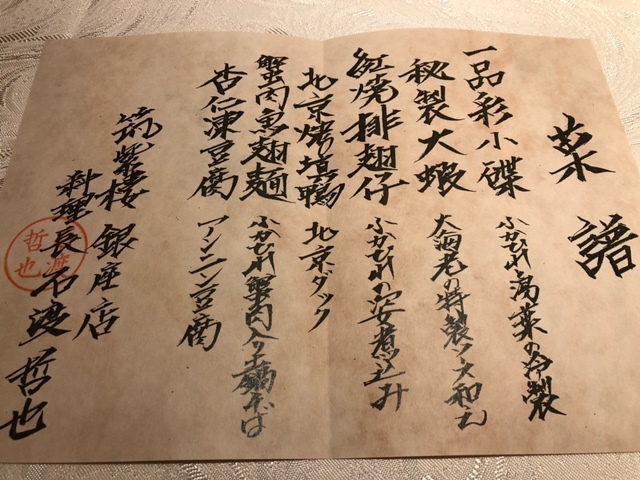 菜譜
一品彩小碟 ふかひれ前菜の冷製
秘製大蝦 大海老の特製ソース和え
紅焼排翅仔 ふかひれの姿煮込み
北京烤填鴨 北京ダック
蟹肉魚翅麺 ふかひれ蟹肉入り土鍋そば
杏仁凍豆腐 アンニン豆腐
筑紫楼 銀座店
料理長 石渡哲也
哲也
渡